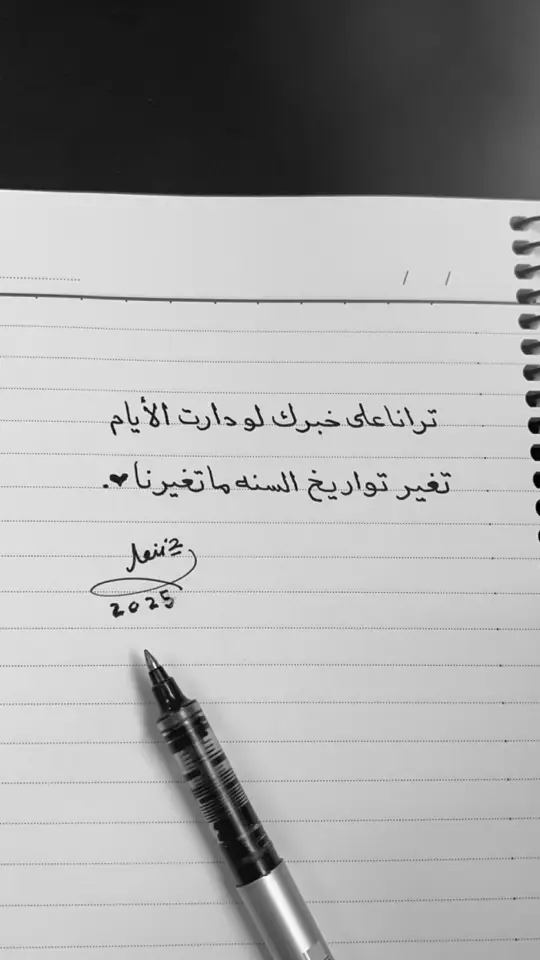 / /
ترانا على خبرك لو دارت الأيام
تغير تواريخ السنه ما تغيرنا♥.
2025